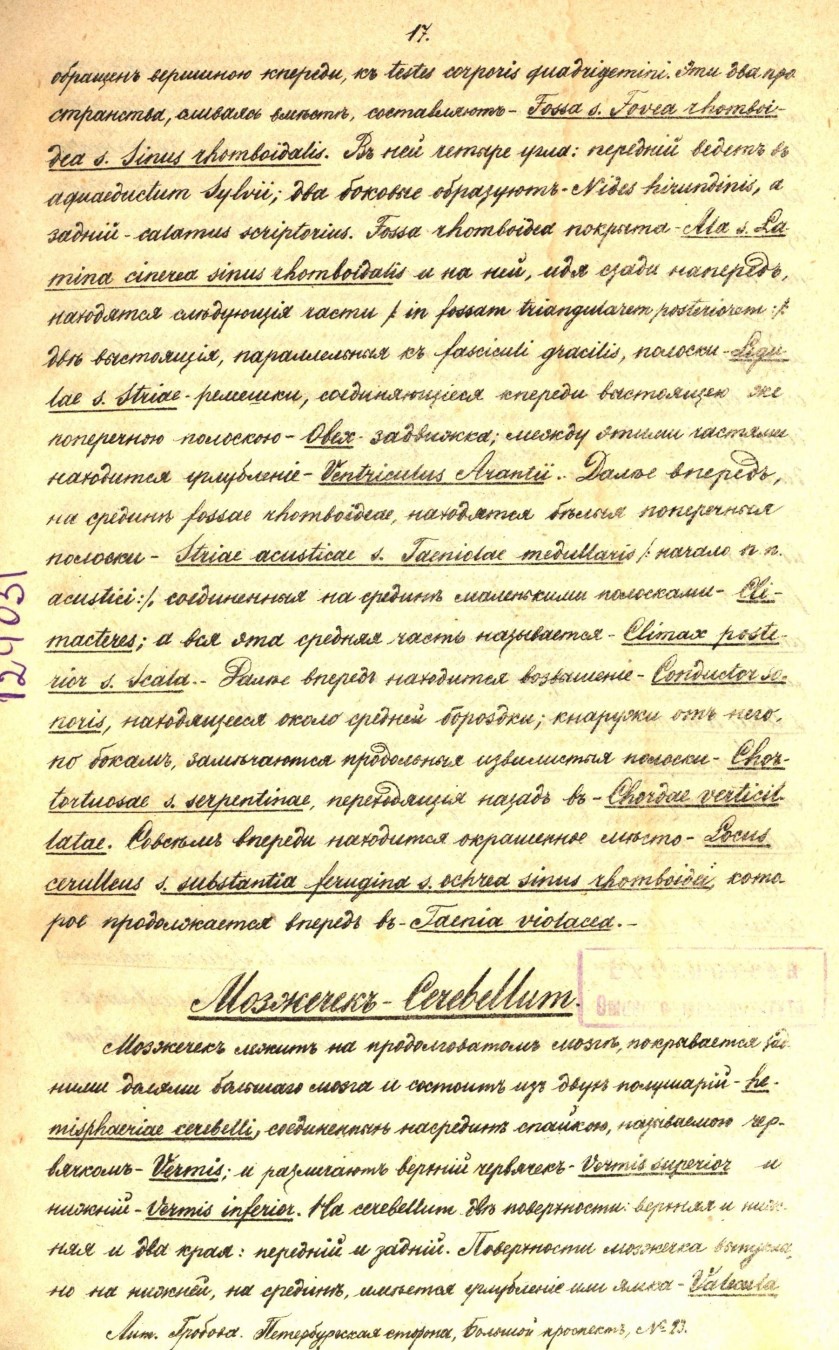 17.
обращенъ вершиною кпереди, къ testes corporis quadrigemini. Эти два про
странства, сливаясь вмѣстѣ, составляютъ - Fossa s. Fovea rhomboi-
dea s. Sinus rhomboidalis. Въ ней четыре угла: передній ведетъ въ
aquaeductum Sylvii; два боковые образуютъ - Nides hirundinis, а
задній - calamus scriptorius. Fossa rhomboidea покрыта - Ala s. La-
mina cinerea sinus rhomboidalis и на ней, идя сзади напередъ,
находятся слѣдующія части /: in fossam triangularem posteriorem :/:
двѣ выстоящія, параллельныя къ fasciculi gracilis, полоски - Ligu-
lae s. Striae - ремешки, соединяющіеся кпереди выстоящею же
поперечною полоскою - Obex - задвижка; между этими частями
находится углубленіе - Ventriculus Arantii. Далѣе впередъ,
на срединѣ fossae rhomboideae, находятся бѣлыя поперечныя
полоски - Striae acusticae s. Taeniolae medullaris /: начало n. n.
acustici :/, соединенныя на срединѣ маленькими полосками - Cli-
macteres; а вся эта средняя часть называется - Climax poste-
rior s. Scala. - Далѣе впередъ находится возвышеніе - Conductor so-
noris, находящееся около средней бороздки; кнаружи отъ него,
по бокамъ, замѣчаются продольныя извилистыя полоски - Chor-
tortuosae s. serpentinae, переходящія назадъ въ - Chordae verticil-
latae. Совсѣмъ впереди находится окрашенное мѣсто - Locus
cerulleus s. substantia ferugina s. ochrea sinus rhomboidei, кото
рое продолжается впередъ въ - Taenia violacea. -
Мозжечекъ - Cerebellum.
Мозжечекъ лежитъ на продолговатомъ мозгѣ, покрывается зад-
ними долями большаго мозга и состоитъ изъ двухъ полушарій - he-
misphaeriae cerebelli, соединенныхъ насрединѣ спайкою, называемою чер-
вячкомъ - Vermis; и различаютъ верхній червячекъ - Vermis superior и
нижній - Vermis inferior. На cerebellum двѣ поверхности: верхняя и ниж-
няя и два края: передній и задній. Поверхности мозжечка выпуклы,
но на нижней, на срединѣ, имѣется углубленіе или ямка - Valecula
Лит. Гробова. Петербургская сторона, Большой проспектъ, № 23.
124031